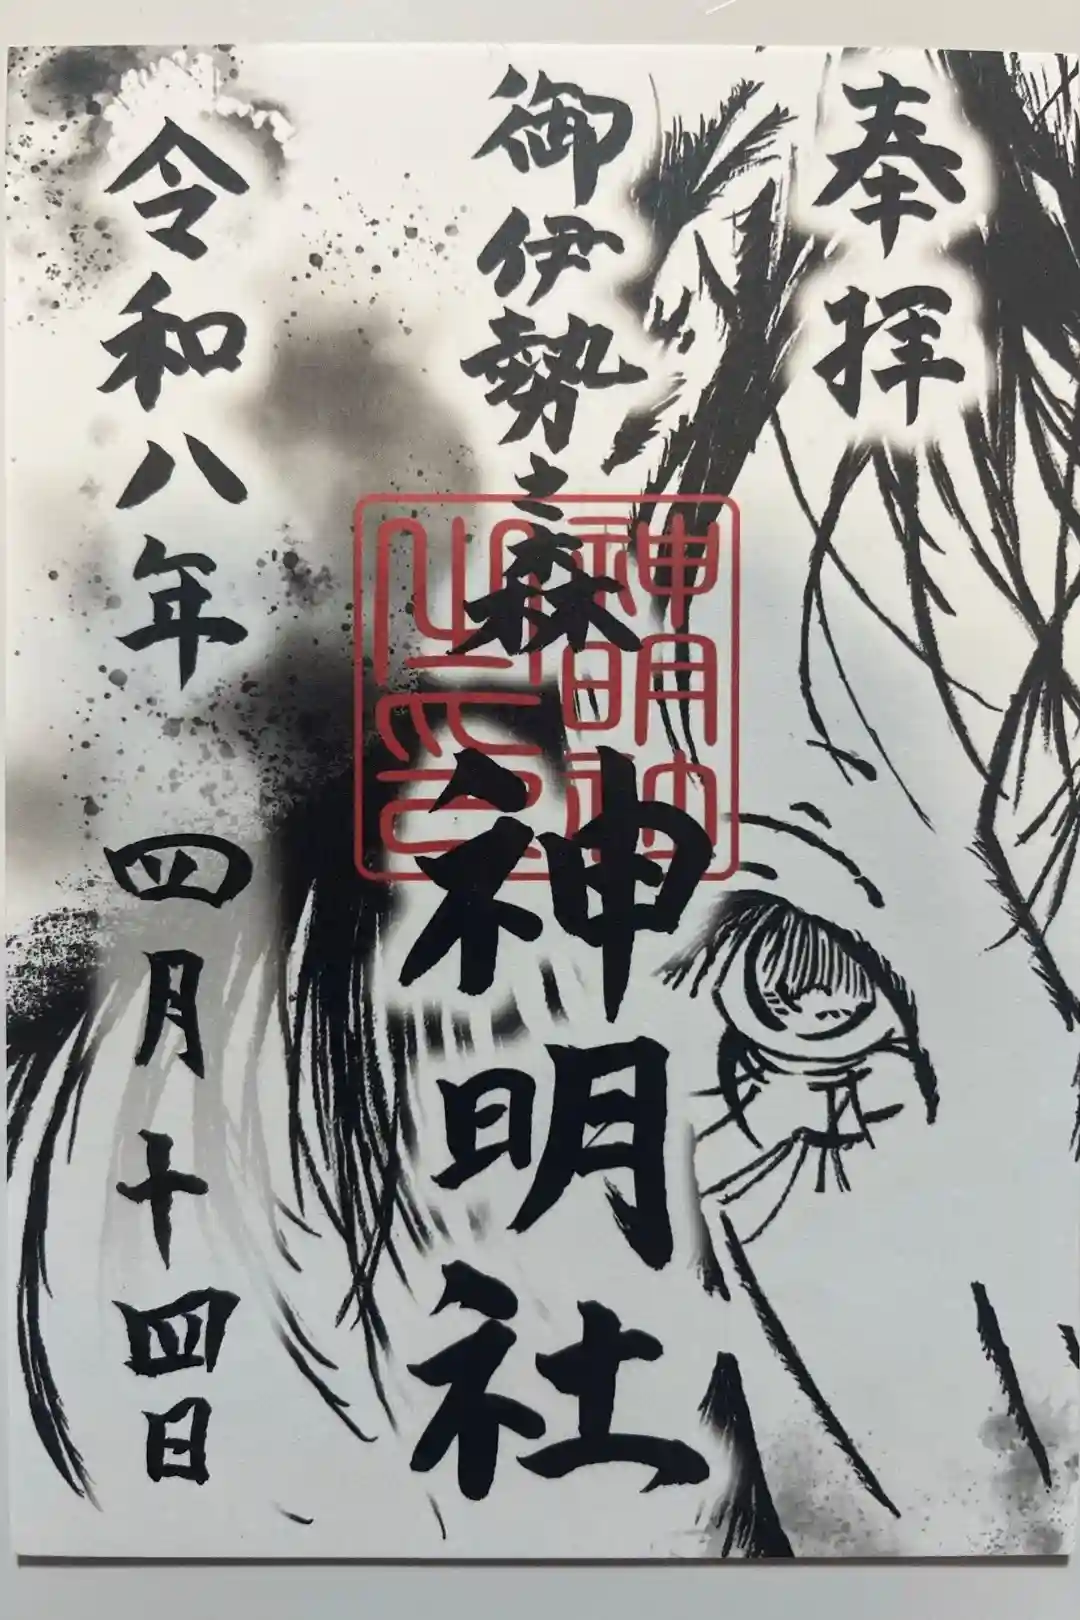 奉拝
御伊勢之森
神明社
神明神社之印
令和八年四月十四日